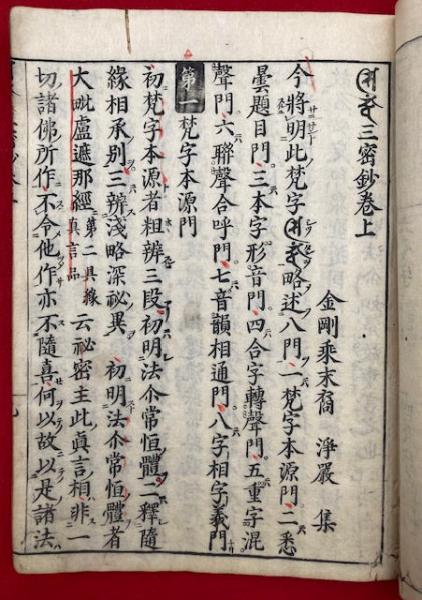 𑖭𑖰𑖟𑖿𑖠𑖽三密鈔卷上
金剛乘末裔　淨嚴　集
今將明此梵字略述八門一梵字本源門二悉
曇題目門三本字形音門四合字轉聲門五重字混
聲門六聯聲合呼門七音韻相通門八字相字義門
第一　梵字本源門
初梵字本源者粗辨三段初明法尒常恒體二釋隨
緣相承別三辨淺略深祕異　初明法尒常恒體者
大毗盧遮那經第二具緣真言品云祕密主此眞言相非一
切諸佛所作不令他作亦不隨喜何以故以是諸法